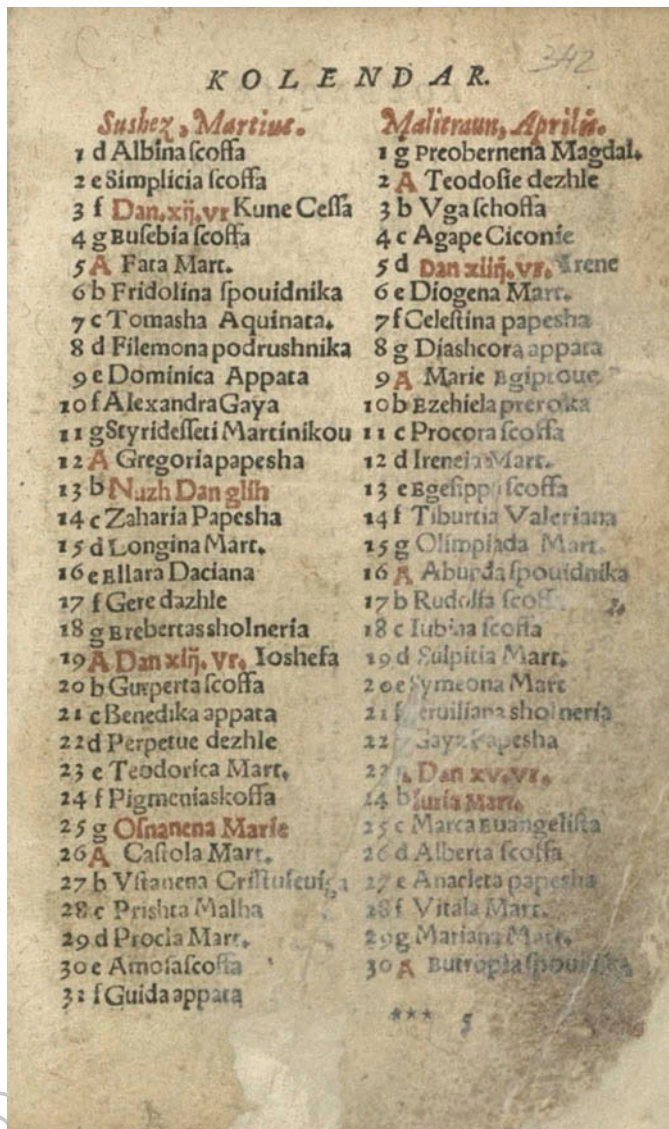 342
KOLENDAR.
Sushez, Martius.
1 d Albina scoffa
2 e Simplicia scoffa
3 f Dan. xij. vr Kune Cessa
4 g Eusebia scoffa
5 A Fata Mart.
6 b Fridolina spouidnika
7 c Tomasha Aquinata.
8 d Filemona podrushnika
9 e Dominica Appata
10 f Alexandra Gaya
11 g Styridesseti Martinikou
12 A Gregoria papesha
13 b Nuzh Dan glih
14 c Zaharia Papesha
15 d Longina Mart.
16 e Ellara Daciana
17 f Gere dazhle
18 g Erebertas sholneria
19 A Dan xiij. vr. Ioshefa
20 b Gutperta scoffa
21 c Benedika appata
22 d Perpetue dezhle
23 e Teodorica Mart.
24 f Pigmenia skoffa
25 g Osnanena Marie
26 A Castola Mart.
27 b Vstanena
28 c Prishta Malha
29 d Procla Mart.
30 e Amosa scoffa
31 f Guida appata
Malitraun, Aprilis.
1 g Preobernena Magdal.
2 A Teodosie dezhle
3 b Vga schoffa
4 c Agape Ciconie
5 d Dan xiiij. vr. Irene
6 e Diogena Mart.
7 f Celestina papesha
8 g Diashcora appata
9 A Marie Egiptoue
10 b Ezehiela preroka
11 c Procora scoffa
12 d Ireneia Mart.
13 e Egesippi scoffa
14 f Tiburtia Valeriana
15 g Olimpiada Mart.
16 A Aburda spouidnika
17 b Rudolfa scoffa
18 c Iubina scoffa
19 d Sulpitia Mart.
20 e Symeona Mart
21 f sholneria
22 Gaya Papesha
Dan xv. vr.
24 b Iuria Mart.
25 c Marca Euangelista
26 d Alberta scoffa
27 e Anacleta papesha
28 f Vitala Mart.
29 g Mariana Mart.
30 A Eutropia
*** 5